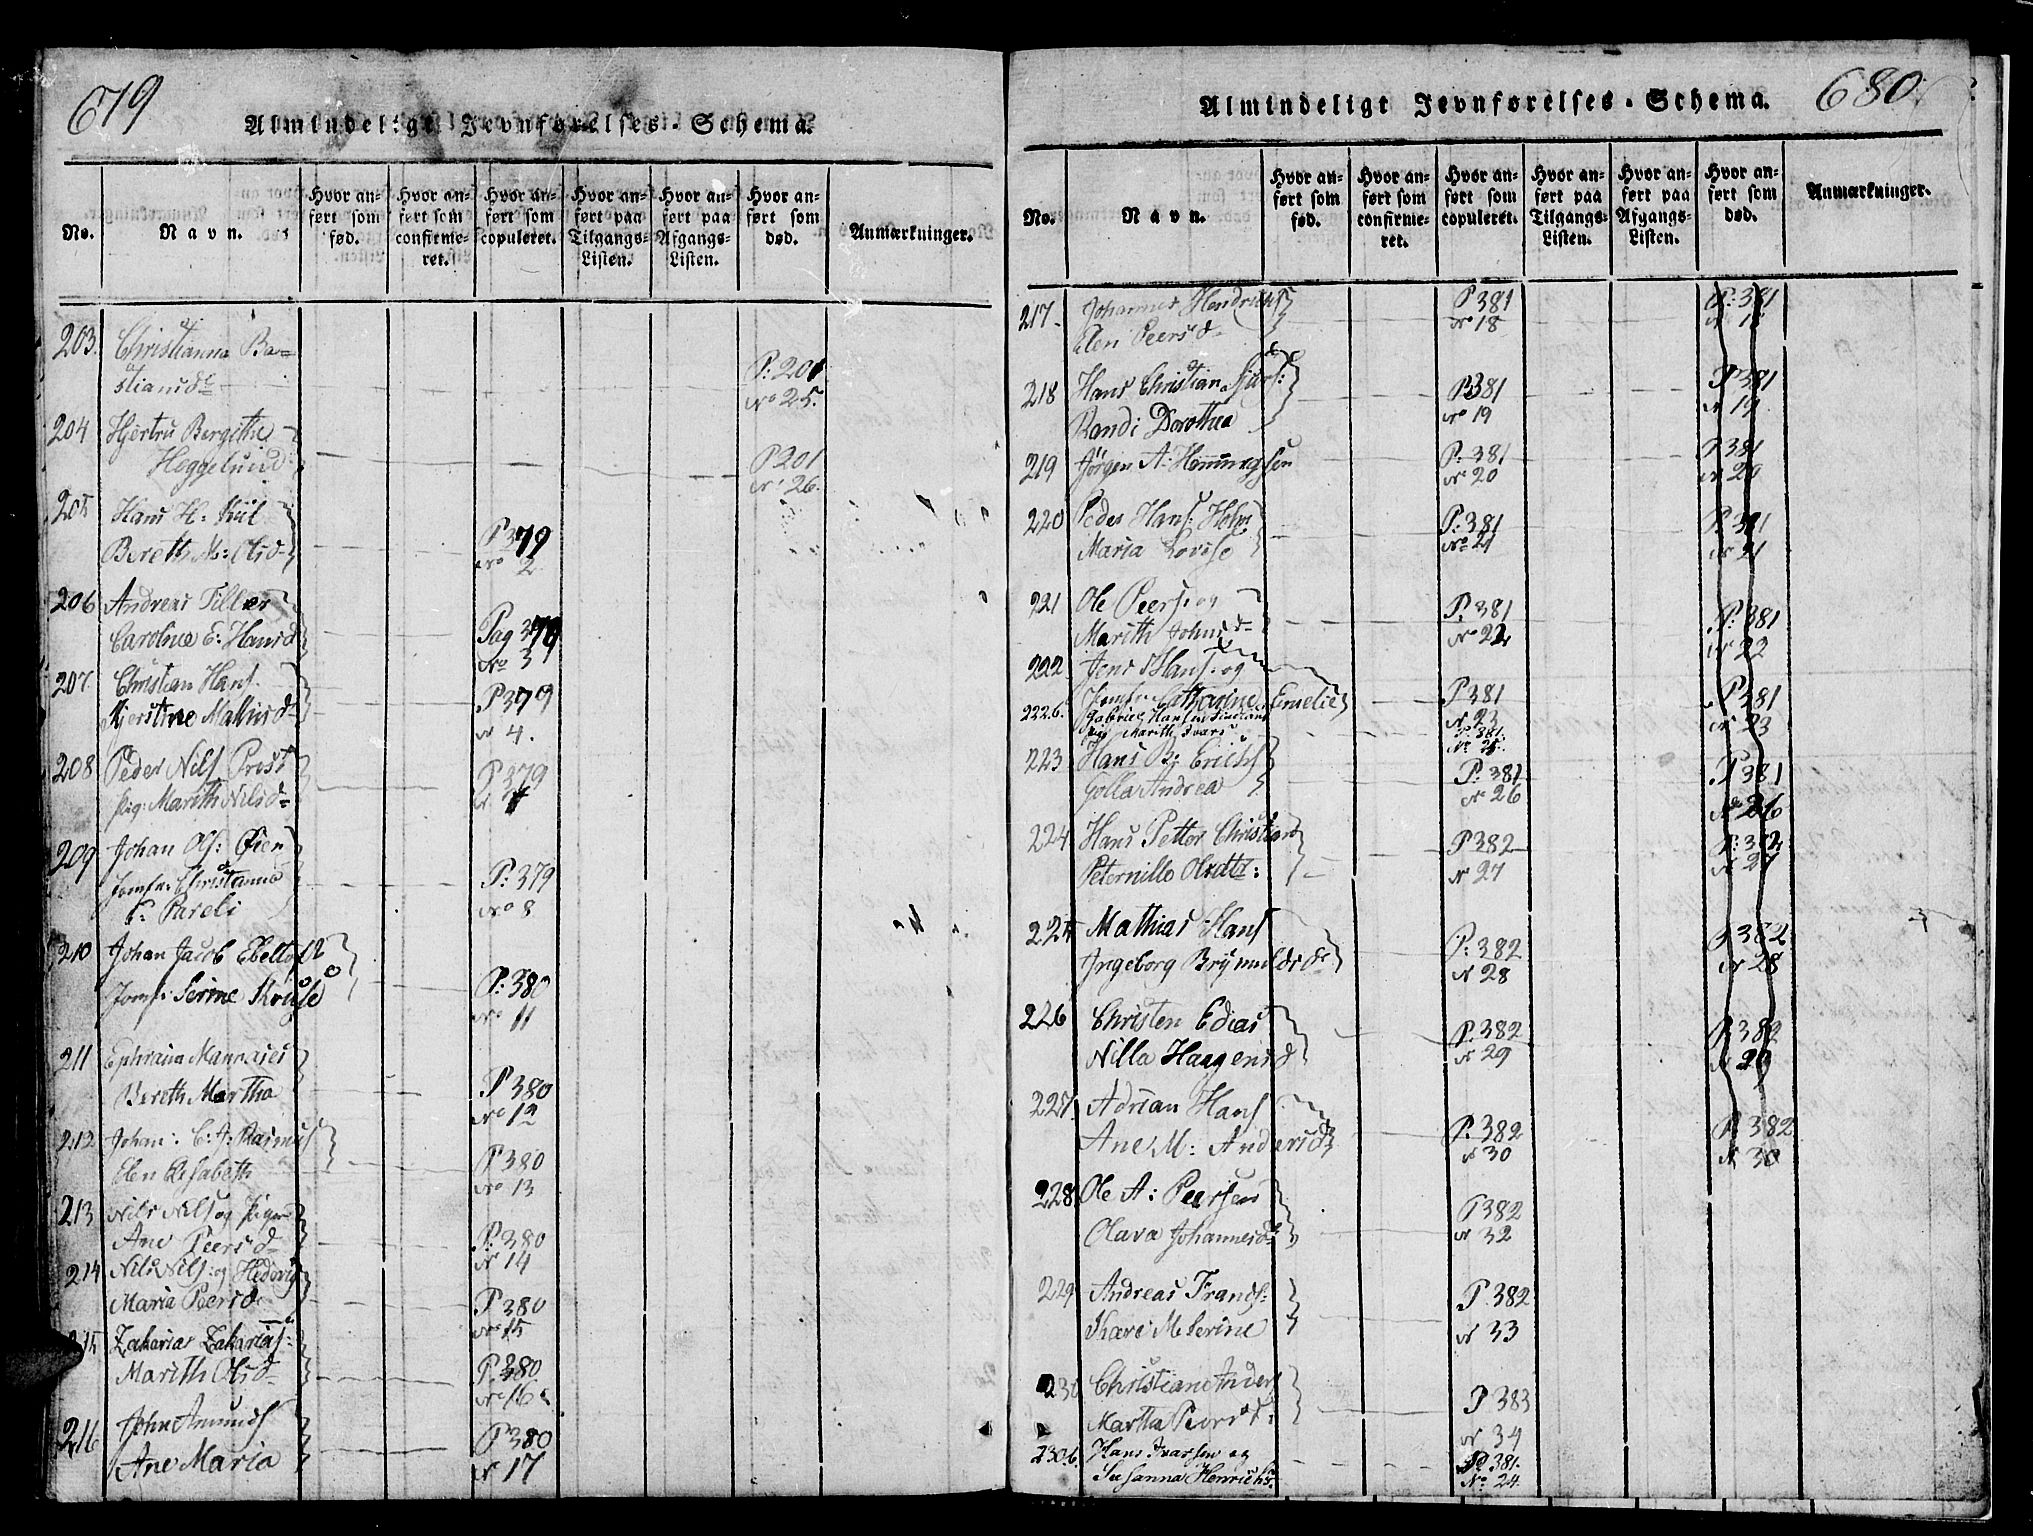 679
Almindeligt Jevnførelses-Schema.
No.
Navn.
Hvor anført som fød.
Hvor anført som confirmeret.
Hvor anført som copuleret.
Hvor anført paa Tilgangs-Listen.
Hvor anført paa Afgangs-Listen.
Hvor anført som død.
Anmærkninger.
203. Christianna Ba-
stiansd P: 201
No 25.
204 Hjertru Bergithe
Heggelund P 201
No 26.
205 Hans H: Kiil
Bereth M: Olsd P 379
No 2
206 Andreas Tiller
Caroline E: Hansd Pag 379
No 3
207. Christian Hans.
Kjerstine Mathisd P 379
N 4.
208 Peder Nils Prest
pig: Marith Nilsd P 379
209 Johan Ols: Øien
Jomfr: Christianna
P: 379
Pareli No 8
210 Johan Jacob Ebeltoft
Jomf: Serine Kruse P: 380
No 11
211 Ephraim Manases
Bereth Martha P 380
No 12
212 Johan: C: A: Rasmus
Elen Elisabeth P 380
No 13
213 Nils Nils og Pigen
Ane Peersd P: 380
N 14
214 Nils Nils: og Hedevig
Maria Peersd P 380
No 15
215 Zakarias Zakarias:
Marith Olsd P. 380
No 16
216 John Amunds
Ane Maria P 380
N 17
680
Almindeligt Jevnførelses-Schema.
No.
Navn.
Hvor anført som fød.
Hvor anført som confirmeret.
Hvor anført som copuleret.
Hvor anført paa Tilgangs-Listen.
Hvor anført paa Afgangs-Listen.
Hvor anført som død.
Anmærkninger.
217. Johannes Hendriks P 381 P: 381
Elen Peersd No 18 No 18
218 Hans Christian P 381 P 381
Randi Dorothea No 19 N 19
219 Jørgen A: Henningsen P: 381 P 381
No 20 N 20
220 Peder Hans: Holm P: 381 P: 381
Maria Lovise No 21 N 21
221 Ole Peers. og P. 381 P: 381
Marith Johnsd No 22 N 22
222. Jens Hans. og
Jomfr Catharine Emelie P 381 P 381
N 23 N 23
222.b. Gabriel Hansen
pig Marith Ivars P. 381.
No 25.
223 Hans B: Erichs P: 381 P 381
Golla Andrea No 26 No 26
224 Hans Petter Christians P 382 P: 382
Peternille Olsdtr: No 27 N 27
225 Mathias Hans P: 382 P 382
Ingeborg Brynnildsd N 28 N 28
226 Christen Edias P. 382 P 382
Nilla Haagensd N 29 N 29
227. Adrian Hans P. 382 P 382
Ane M: Andersd N 30 N 30
228 Ole A: Peersen P 382
Olava Johannesd N 32
229 Andreas Frands: P. 382
Karen M Serine N 33
230 Christian Anders P 383
Martha Peersd: N 34
230.b. Hans Ivarsen og P. 381.
Susanna Henrichs. No. 24.